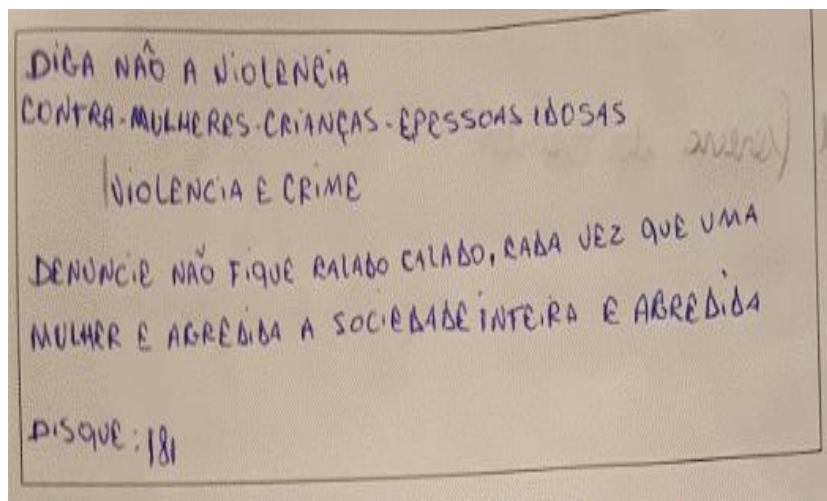 DIGA NÃO A VIOLENCIA
CONTRA-MULHERES-CRIANÇAS-EPESSOAS IDOSAS
VIOLENCIA E CRIME
DENUNCIE NÃO FIQUE RALADO CALADO, CADA VEZ QUE UMA
MULHER E AGREDIDA A SOCIEDADE INTEIRA E AGREDIDA
DISQUE: 181